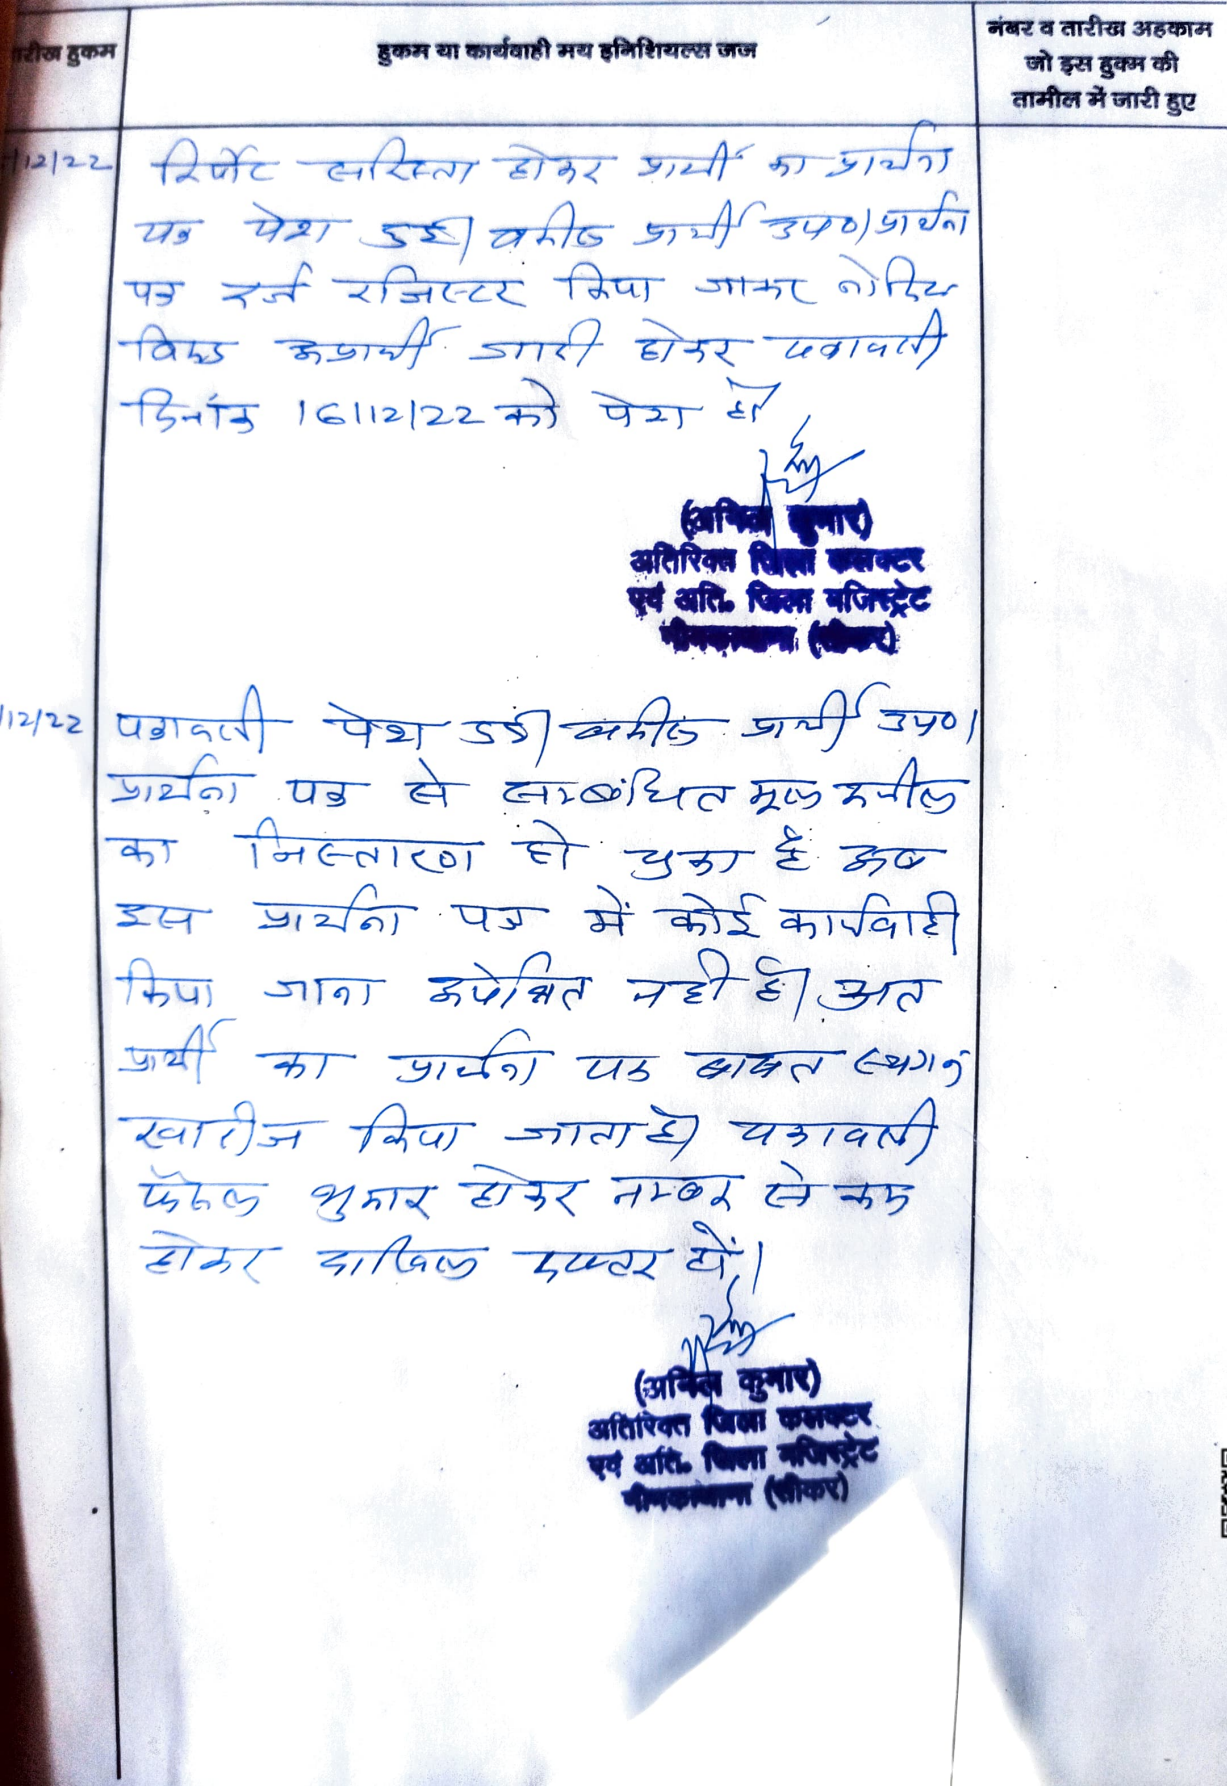 तारीख हुकम
हुकम या कार्यवाही मय इनिशियल्स जज
नंबर व तारीख अहकाम
जो इस हुक्म की
तामील में जारी हुए
/12/22 रिर्पोट सरिस्ता होकर प्रार्थी का प्रार्थना
पत्र पेश हुई। वकील प्रार्थी उप०। प्रार्थना
पत्र दर्ज रजिस्टर किया जाकर नोटिस
विरूद्ध अप्रार्थी जारी होकर पत्रावली
दिनांक 16/12/22 को पेश हो
(अनिल कुमार)
अतिरिक्त जिला कलक्टर
एवं अति. जिला मजिस्ट्रेट
नीमकाथाना (सीकर)
/12/22 पत्रावली पेश हुई। वकील प्रार्थी उप०।
प्रार्थना पत्र से सम्बंधित मूल अपील
का निस्तारण हो चुका है अब
इस प्रार्थना पत्र में कोई कार्यवाही
किया जाना अपेक्षित नही है। अत
प्रार्थी का प्रार्थना पत्र बाबत स्थगन
खारीज किया जाता है। पत्रावली
फैसल शुमार होकर नम्बर से कम
होकर दाखिल दफ्तर हों।
(अनिल कुमार)
अतिरिक्त जिला कलक्टर
एवं अति. जिला मजिस्ट्रेट
नीमकाथाना (सीकर)